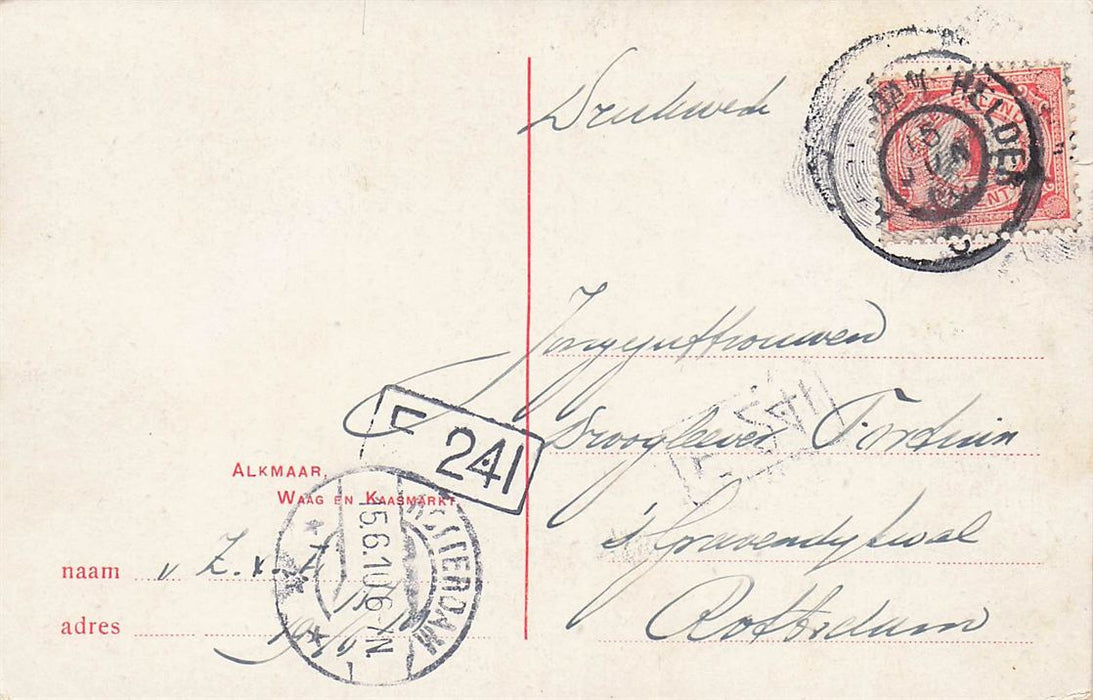 Drukwerk
DAM-HELDER
C
Jongejuffrouwen
Droogleever Fortuin
's Gravendijkwal
Rotterdam
241
241
ALKMAAR,
WAAG EN KAASMARKT
ROTTERDAM
15.6.10 6-7N.
naam v Z. x. Z
adres